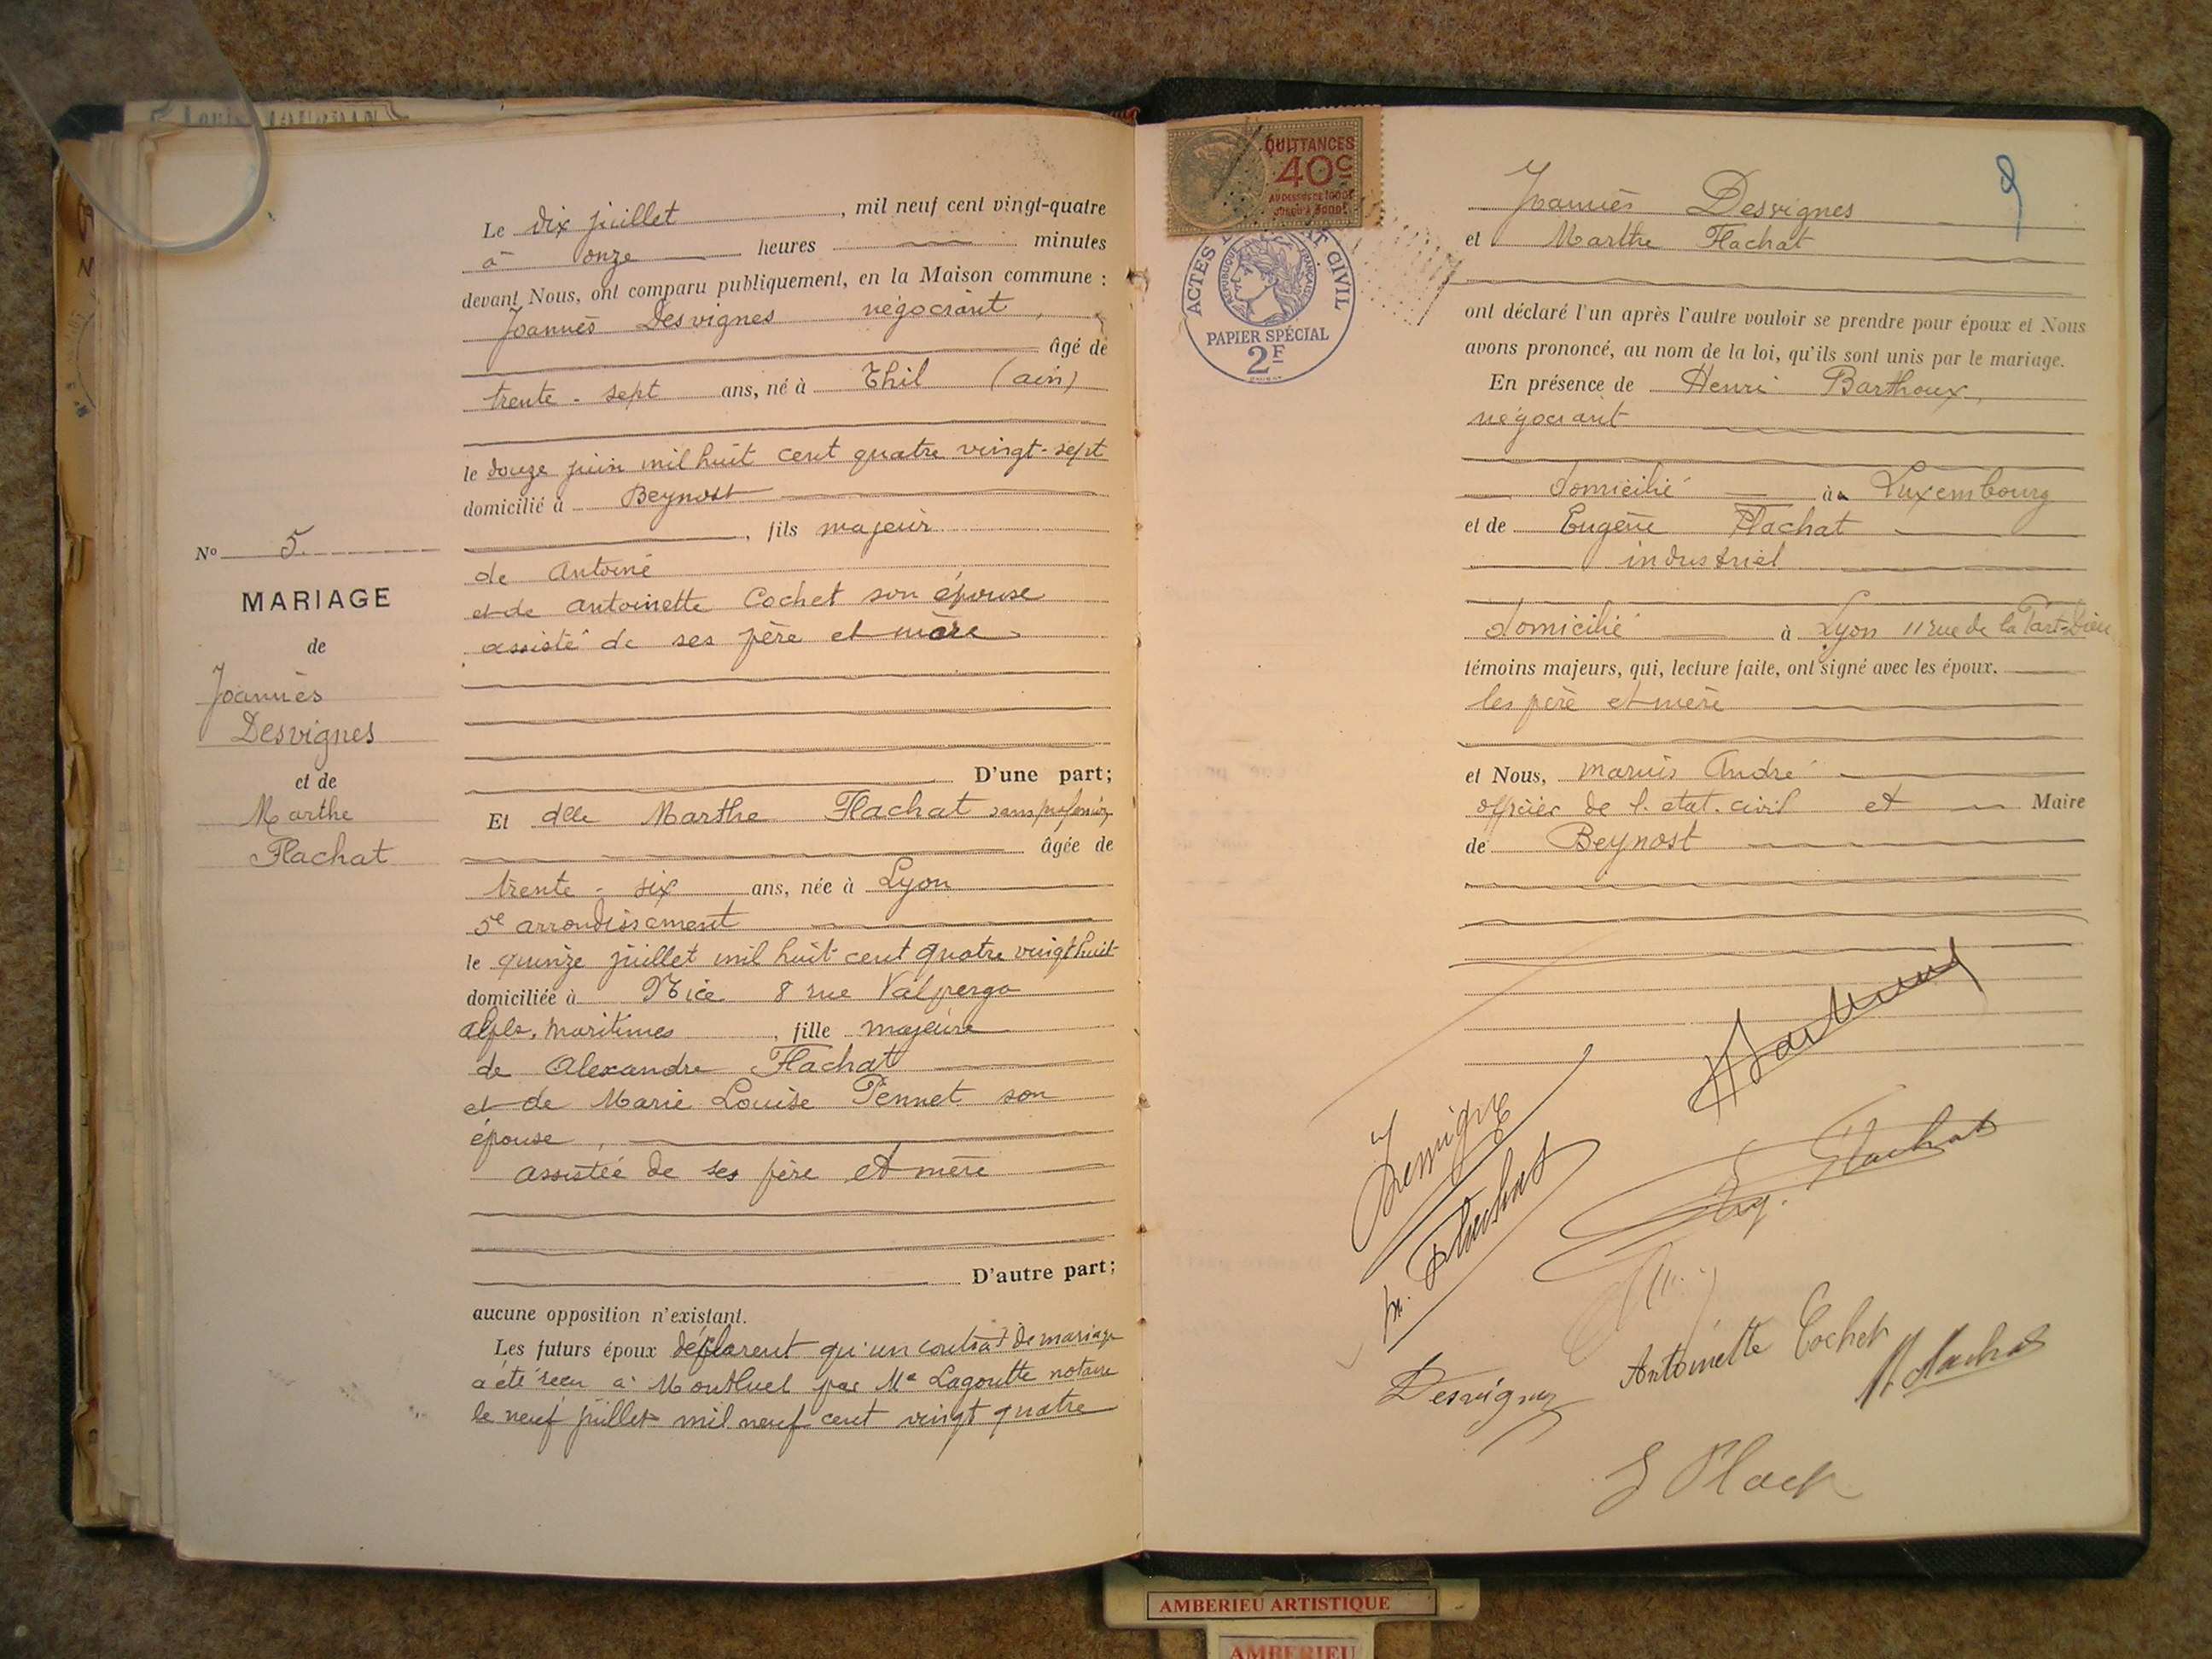 Le dix juillet, mil neuf cent vingt-quatre
à onze heures minutes
devant Nous, ont comparu publiquement, en la Maison commune :
Joannès Desvignes négociant,
âgé de
trente-sept ans, né à Thil (ain)
le douze juin mil huit cent quatre vingt-sept
domicilié à Beynost
, fils majeur
de Antoine
et de Antoinette Cochet son épouse
assisté de ses père et mère
D'une part;
Et dlle Marthe Flachat sans profession
âgée de
trente-six ans, née à Lyon
5e arrondissement
le quinze juillet mil huit cent quatre vingt huit
domiciliée à Nice 8 rue Valperga
alpes. maritimes, fille majeure
de Alexandre Flachat
et de Marie Louise Pennet son
épouse,
assistée de ses père et mère
D'autre part;
aucune opposition n'existant.
Les futurs époux déclarent qu'un contrat de mariage
a été reçu à Montluel par Me Lagoutte notaire
le neuf juillet mil neuf cent vingt quatre
No 5
MARIAGE
de
Joannès
Desvignes
et de
Marthe
Flachat
QUITTANCES
40c
ACTES ÉTAT CIVIL
RÉPUBLIQUE FRANÇAISE
PAPIER SPÉCIAL
2F
9
Joannès Desvignes
et Marthe Flachat
ont déclaré l'un après l'autre vouloir se prendre pour époux et Nous
avons prononcé, au nom de la loi, qu'ils sont unis par le mariage.
En présence de Henri Barthoux,
négociant
domicilié à Luxembourg
et de Eugène Flachat
industriel
domicilié à Lyon 11 rue de la Part-Dieu
témoins majeurs, qui, lecture faite, ont signé avec les époux.
les père et mère
et Nous, Marius André
officier de l'état-civil et Maire
de Beynost
J Desvignes
M. Flachat
Eug. Flachat
Antoinette Cochet
Desvignes
M. Flachat
AMBERIEU ARTISTIQUE
AMBERIEU